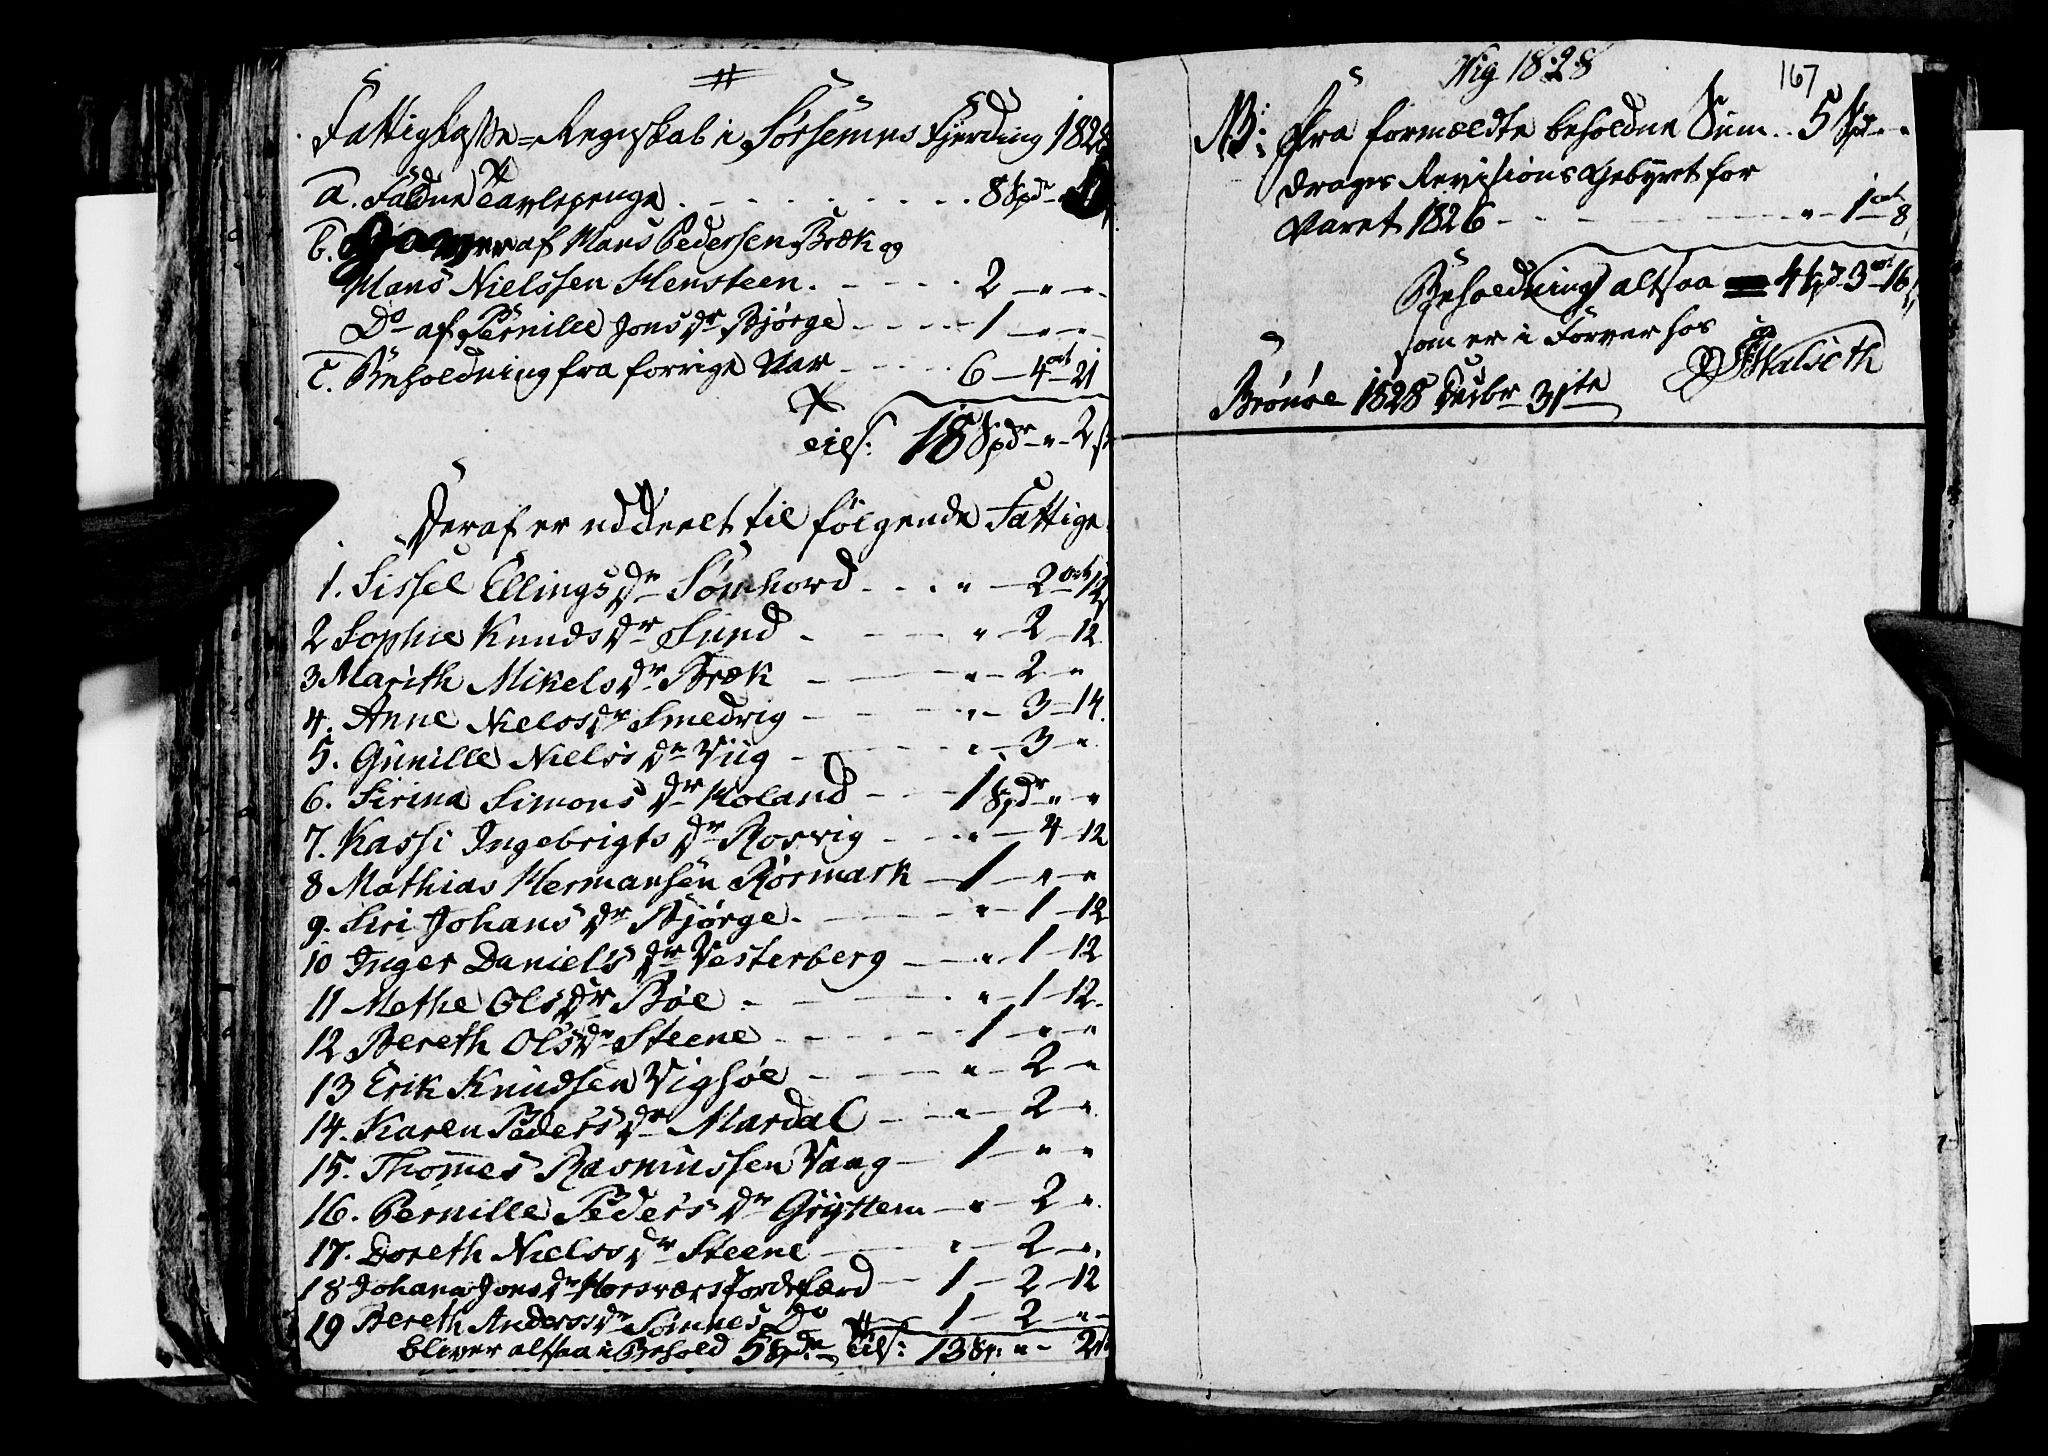 Fattigkasse=Regnskab i Sørsemnes Fjerding 1828
a. Faldne Tavlepenge . - - - - - - 8 Spdr
b. Gaver af Hans Pedersen Bræk og
Hans Nielssen Hensteen. - - - - 2 - " - "
Do af Pernille Jonsdr Bjørge - - - - 1 - " - "
c. Beholdning fra forrige Aar - - - - 6 - 4 ort 21
Tils: 18 Spdr " - 2 s
Deraf er uddeelt til følgende Fattige
1. Sissel Ellingsdr Sømhord - - . " - 2 ort 12 s
2 Sophie Knudsdr Sund - - - " - 2 - 12
3 Marith Mikelsdr Bræk - - - " - 2 - "
4. Anne Nielsdr Smedvig - - - " - 3 - 14.
5. Gunille Nielsdr Viig - - - " - 3 - "
6. Sirina Simonsdr Holand - - - 1 Spdr " - "
7. Kassi Ingebrigtsdr Rosvig - - - " - 4 - 12
8 Mathias Hermansen Rørmark - 1 - " - "
9. Siri Johansdr Bjørge. - - - " - 1 - 12
10 Inger Danielsdr Vesterberg - - " - 1 - 12
11 Methe Olsdr Bøe - - - " - 1 - 12.
12 Bereth Olsdr Steene - - - - 1 - " - "
13 Erik Knudsen Vigsøe - - - " - 2 - "
14. Karen Pedersdr Mardal - - " - 2 - "
15. Thomes Rasmussen Vaag - 1 - " - "
16. Pernille Pedersdr Gryttem - " - 2 - "
17. Doreth Nielsdr Steene - - " - 2 - "
18 Johana Jonsdr Horsværs Jordefærd - 1 - 2 - 12
19 Bereth Andersdr Sømnes Do - 1 - 2 - " -
bliver altsaa i Behold 5 Spdr Tils: 13 Sp: " - 2 s
Viig 1828
167
NB: Fra formældte beholdne Sum .. 5 Spd " "
drages Revisions Gebyret for
Aaret 1826 - - - - " - 1 ort 8
Beholdning altsaa 4 Spd 3 ort 16
som er i Forvar hos
Walseth
Brønøe 1828 Decbr 31te